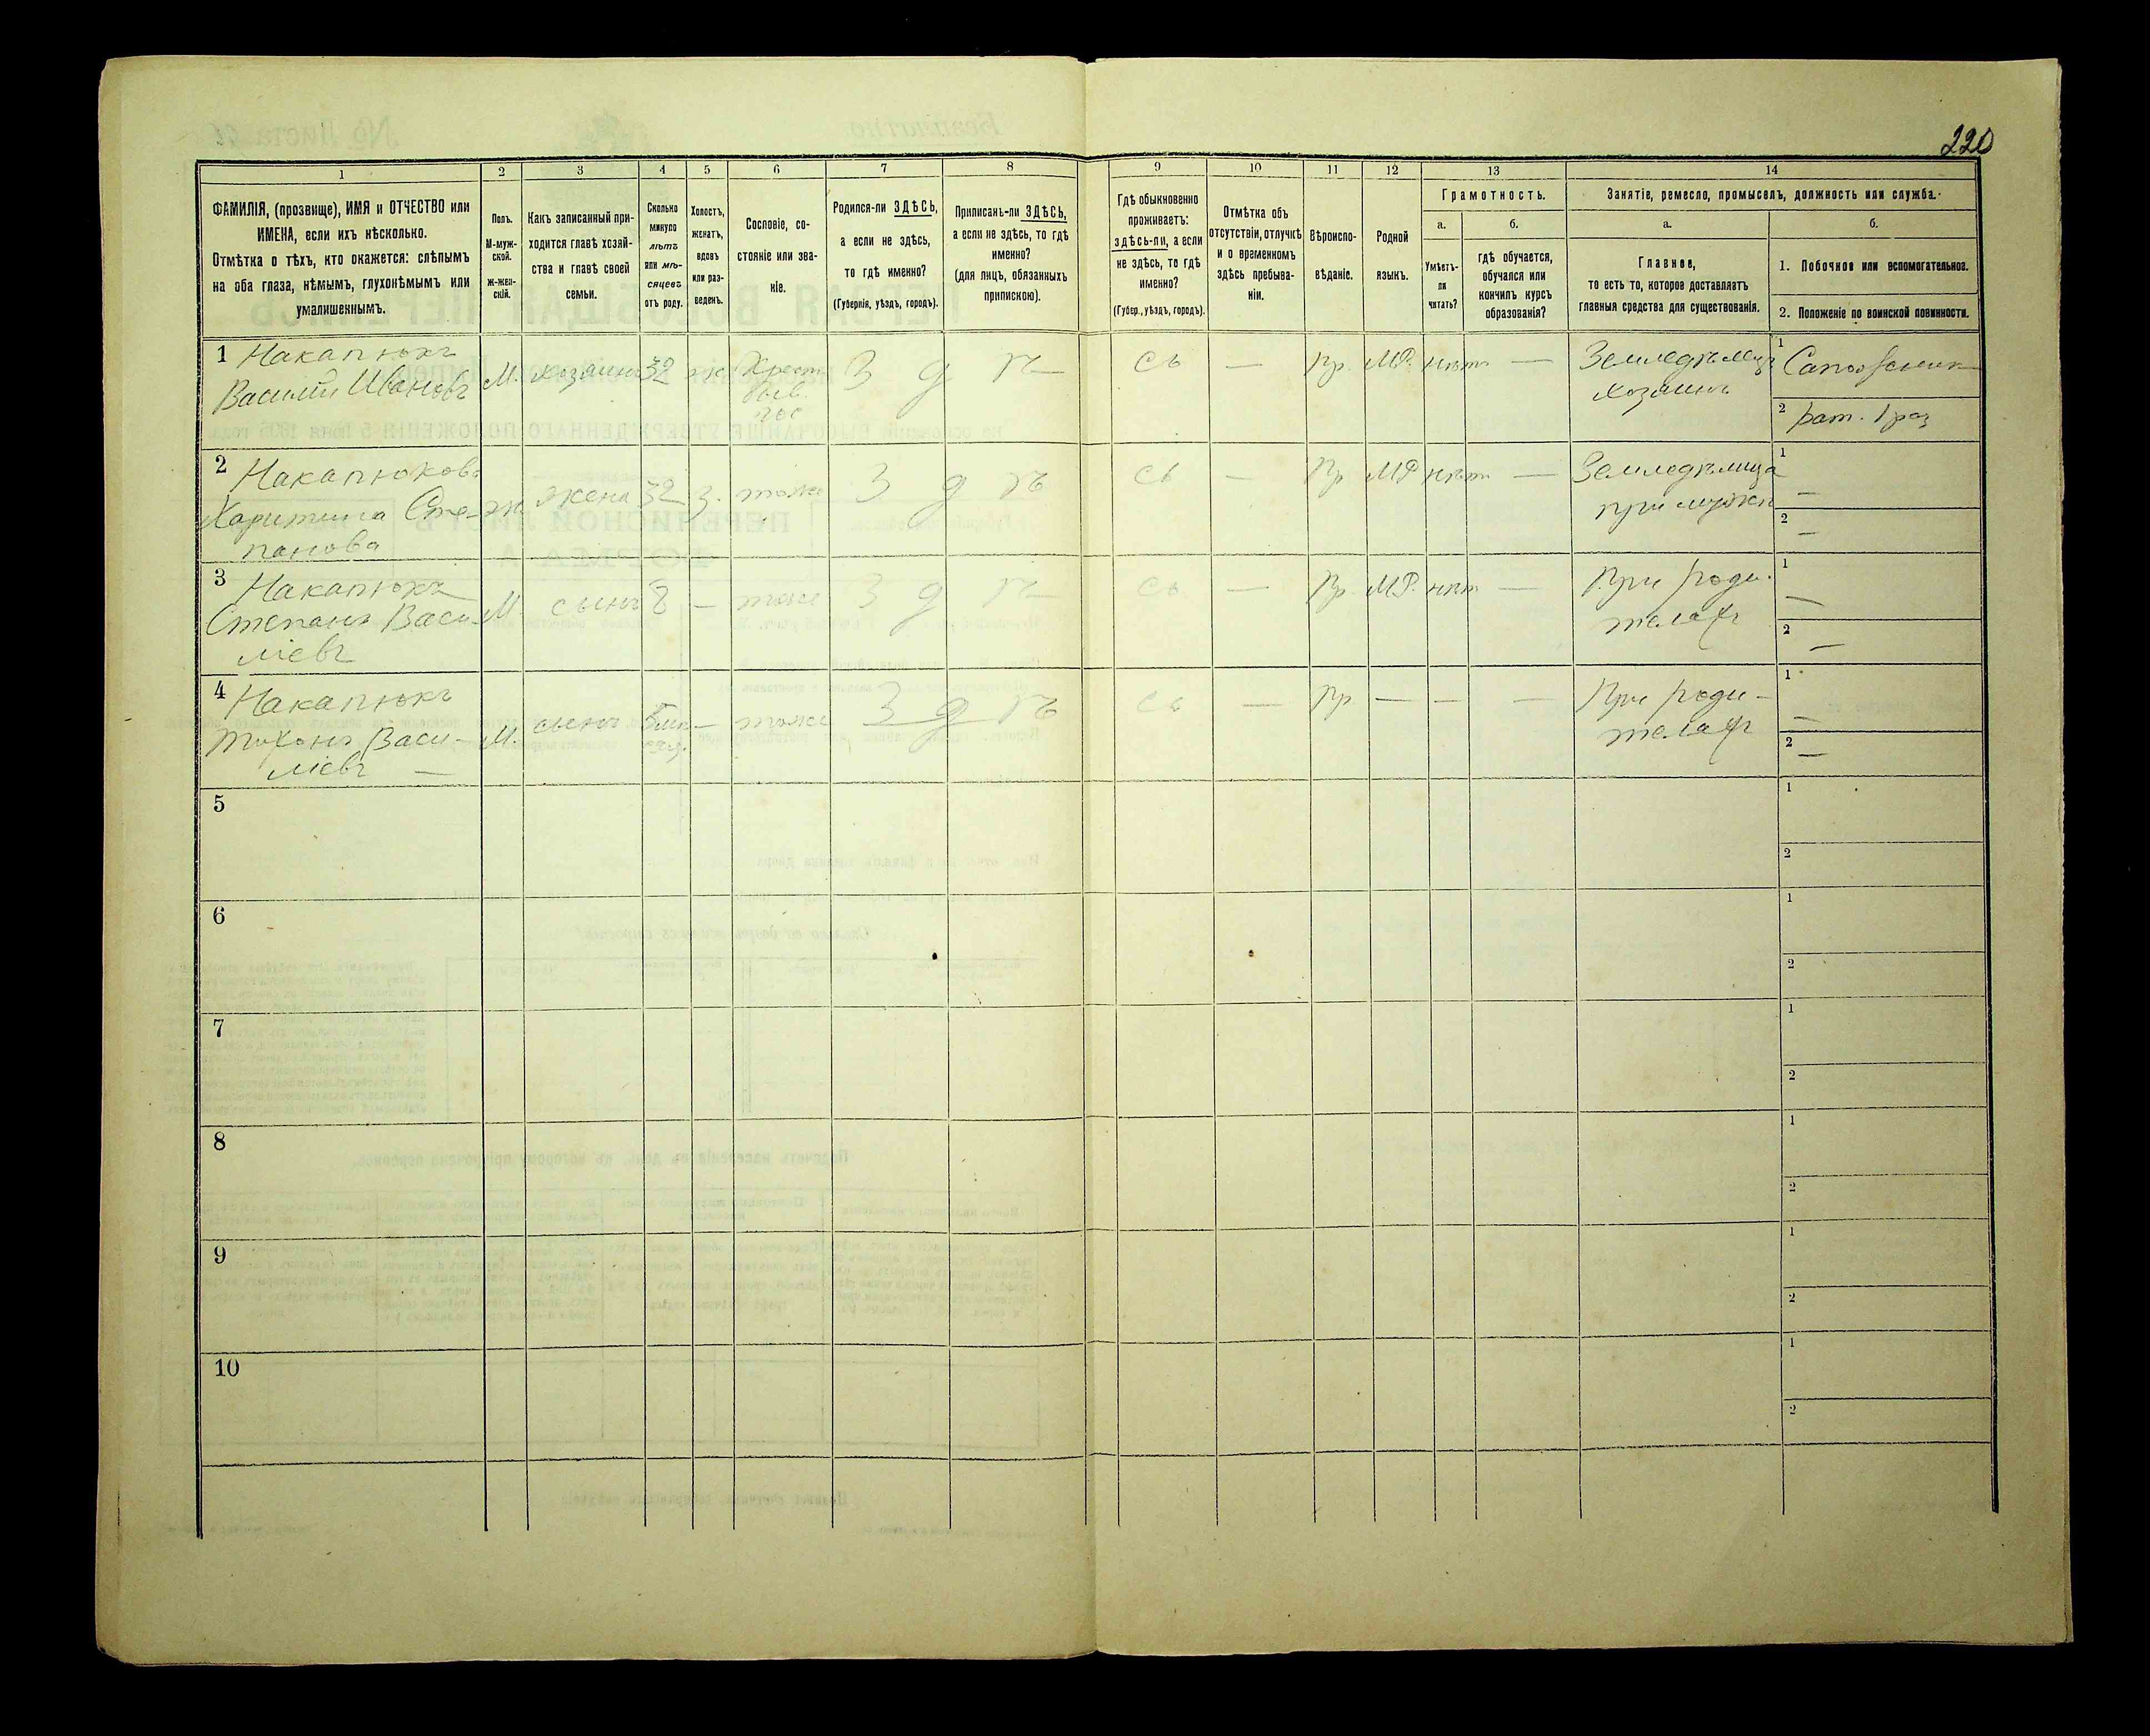 220
1
2
3
4
5
6
7
8
9
10
11
12
13
14
ФАМИЛІЯ, (прозвище), ИМЯ и ОТЧЕСТВО или
ИМЕНА, если ихъ нѣсколько.
Отмѣтка о тѣхъ, кто окажется: слѣпымъ
на оба глаза, нѣмымъ, глухонѣмымъ или
умалишеннымъ.
Полъ.
М-муж-
ской.
ж-жен-
скій.
Какъ записанный при-
ходится главѣ хозяй-
ства и главѣ своей
семьи.
Сколько
минуло
лѣтъ
или мѣ-
сяцевъ
отъ роду.
Холостъ,
женатъ,
вдовъ
или раз-
веденъ.
Сословіе, со-
стояніе или зва-
ніе.
Родился-ли ЗДѢСЬ,
а если не здѣсь,
то гдѣ именно?
(Губернія, уѣздъ, городъ).
Приписанъ-ли ЗДѢСЬ,
а если не здѣсь, то гдѣ
именно?
(для лицъ, обязанныхъ
припискою).
Гдѣ обыкновенно
проживаетъ:
здѣсь-ли, а если
не здѣсь, то гдѣ
именно?
(Губер., уѣздъ, городъ).
Отмѣтка объ
отсутствіи, отлучкѣ
и о временномъ
здѣсь пребыва-
ніи.
Вѣроиспо-
вѣданіе.
Родной
языкъ.
Грамотность.
а.
Умѣетъ-
ли
читать?
б.
гдѣ обучается,
обучался или
кончилъ курсъ
образованія?
Занятіе, ремесло, промыселъ, должность или служба.
а.
Главное,
то есть то, которое доставляетъ
главныя средства для существованія.
б.
1. Побочное или вспомогательное.
2. Положеніе по воинской повинности.
1 Накапюкъ
Василій Ивановъ
М. хозяинъ 32 ж Крест.
быв.
гос
З д ѣ
сь — Пр. МР. нѣтъ —
Земледѣлец
хозяинъ
1
2 рат. 1 раз
2 Накапюкова
Харитина Сте-
панова
ж жена 32 З. тоже З д ѣ
сь — Пр МР нѣтъ —
Земледѣлица
при мужѣ
1 —
2 —
3 Накапюкъ
Степанъ Васи-
ліевъ
М. сынъ 8 — тоже З д ѣ
сь — Пр. МР. нѣтъ —
При роди-
телахъ
1 —
2 —
4 Накапюкъ
Тихонъ Васи-
ліевъ —
М. сынъ 5 мѣ
сяц. — тоже З д ѣ
сь — Пр — — —
При роди-
телахъ
1 —
2 —
5
1
2
6
1
2
7
1
2
8
1
2
9
1
2
10
1
2